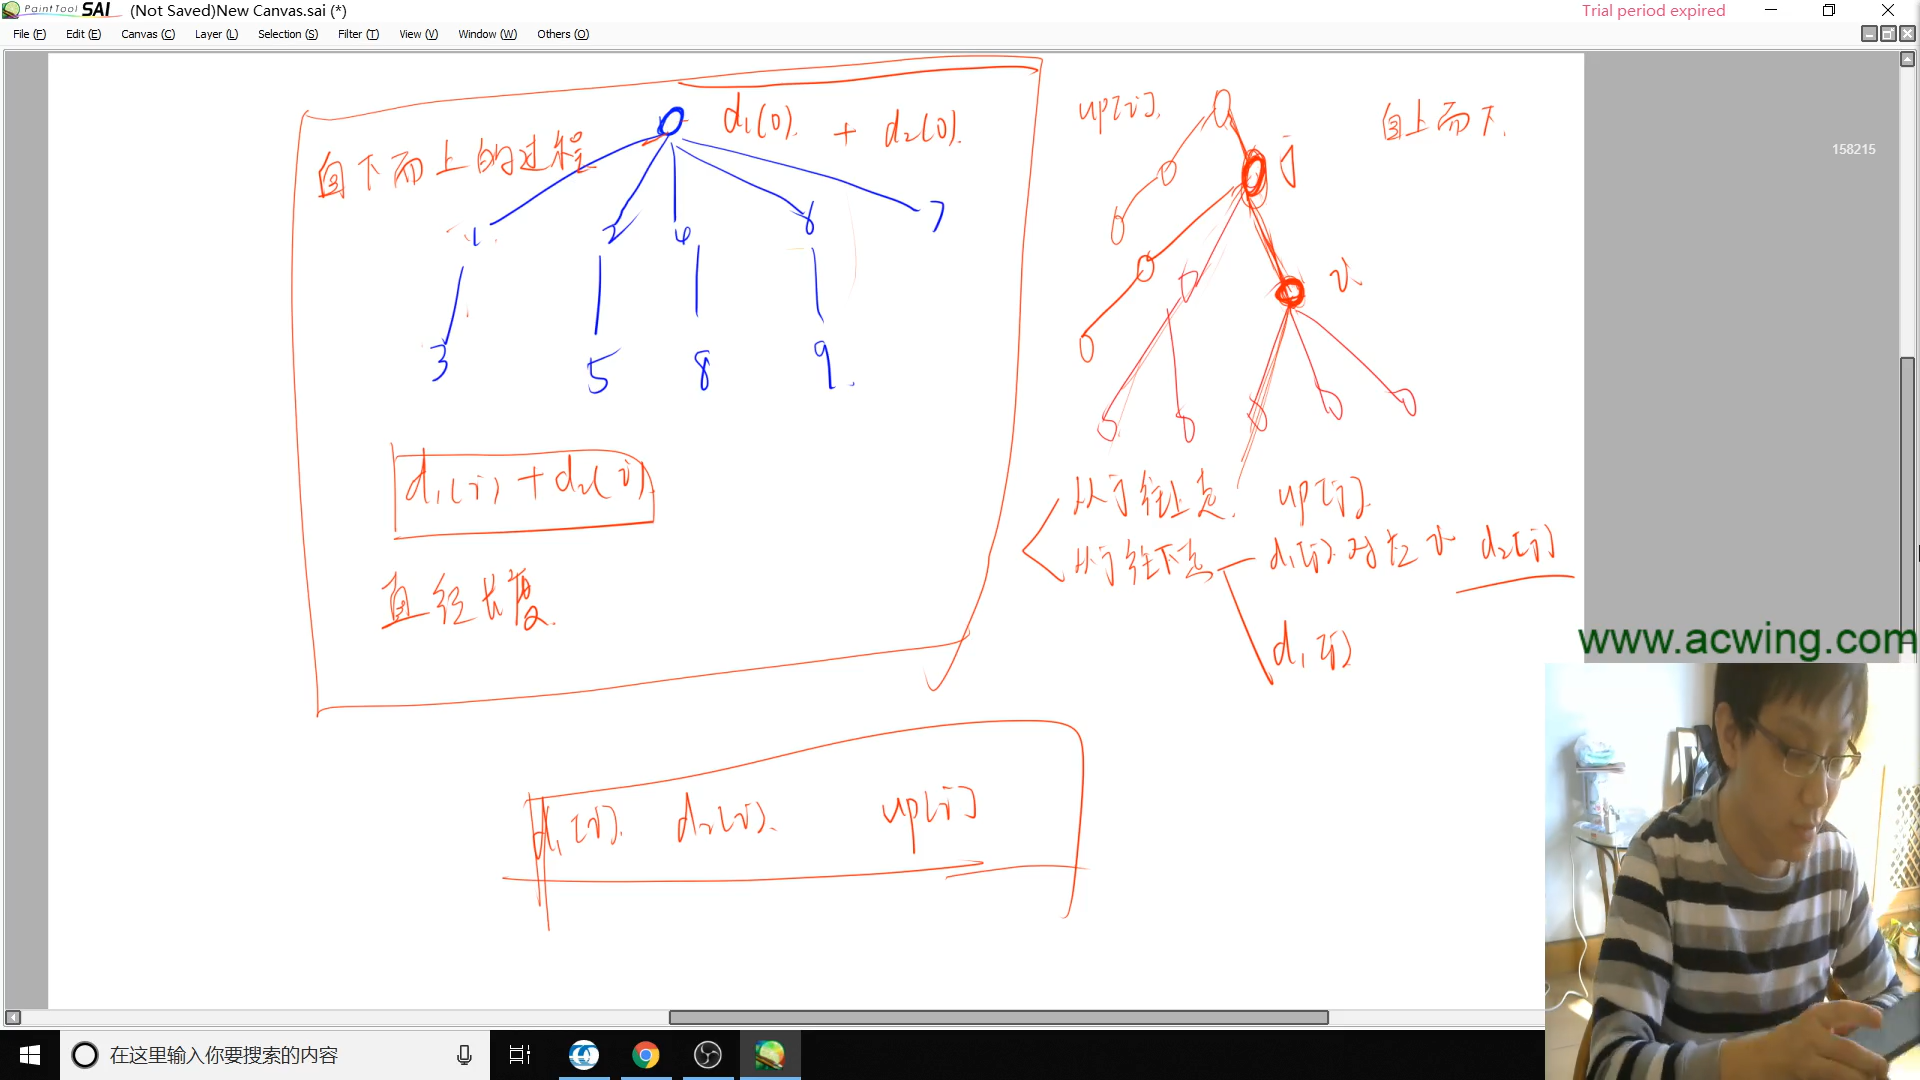 PaintTool SAI (Not Saved)New Canvas.sai (*)
Trial period expired
File (F) Edit (E) Canvas (C) Layer (L) Selection (S) Filter (T) View (V) Window (W) Others (O)
d₁(0). + d₂(0).
自下而上的过程
1 2 4 6 7
3 5 8 9
d₁(i) + d₂(i)
直径长度.
up[i].
自上而下.
158215
j
i
从j往上走. up[j].
从j往下走 d₁[j]对应i d₂[j]
d₁[j]
d₁[i]. d₂[i]. up[i]
www.acwing.com
在这里输入你要搜索的内容